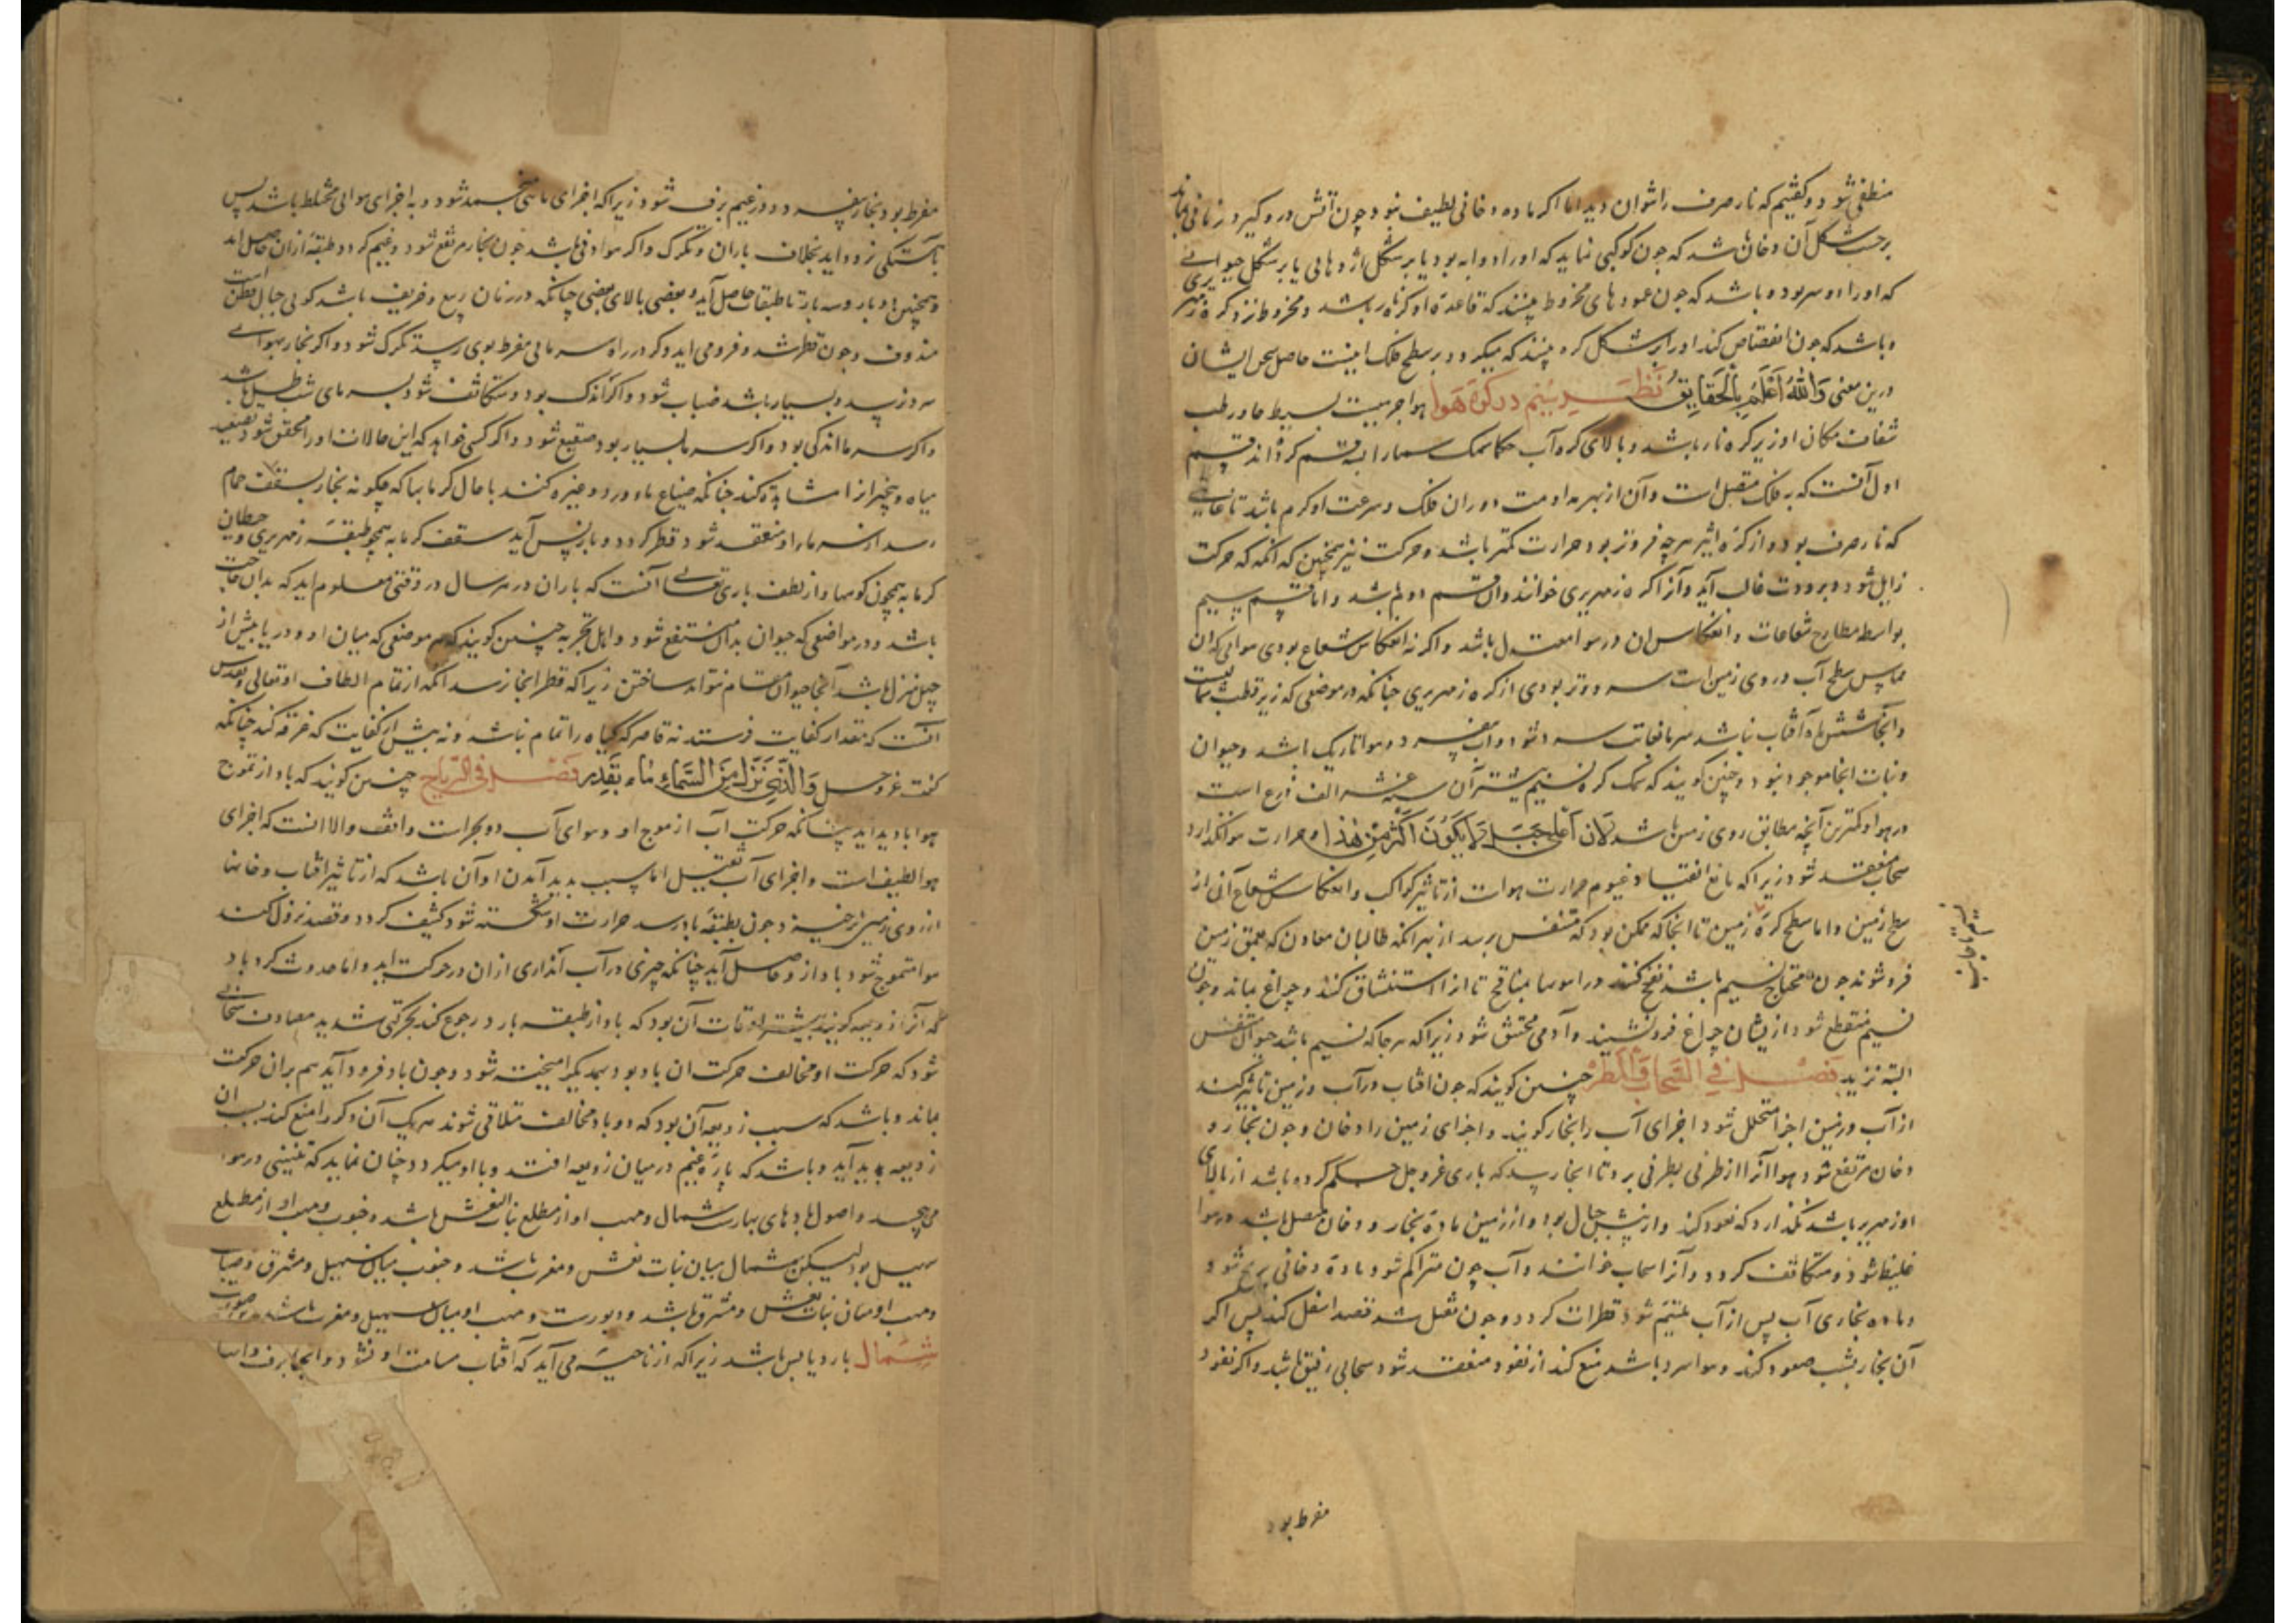 منطفی شود و گفتیم که نار صرف را نتوان دید اما اکر ماده دخانی لطیف نبود چون آتش درو گیرد زمانی بماند
برحسب شکل آن دخان باشد که چون کوکبی نماید که او را ذوابه بود یا بر شکل اژدهایی یا بر شکل حیوانی
که او را دو سر بود و باشد که چون عمودهای مخروط بینند که قاعده او کره نار باشد و مخروط نزد کره زمهریری
و باشد که چون انفصاض کند او را بر شکل کره بینند که میکردد بر سطح فلک اینست حاصل سخن ایشان
درین معنی والله اعلم بالحقایق نظر پنیم در کره هوا هوا جرمیست بسیط حار رطب
شفاف مکان او زیر کره نار باشد و بالای کره آب حکما سمک هوا را بسه قسم کرده اند قسم
اول آنست که بفلک متصل است و آن از بهر مداومت دوران فلک و سرعت او کرم باشد تا غایتی
که نار صرف بود و از کره اثیر هرچه فروتر بود حرارت کمتر باشد و حرکت نیز همچنین که آنکه که حرکت
زایل شود و برودت غالب آید و آنرا کره زمهریری خوانند و آن قسم دوم باشد و اما قسم سیم
بواسطه مطارح شعاعات و انعکاس آن در هوا معتدل باشد و اکر نه انعکاس شعاع بودی هوایی که آن
مماس سطح آب و روی زمین است سردتر بودی از کره زمهریری چنانکه در موضعی که زیر قطب شمالیست
و آنجا شش ماه آفتاب نباشد سرما بغایت سرد شود و آب بفسرد و هوا تاریک باشد و حیوان
و نبات آنجا موجود نبود و چنین کویند که سمک کره نسیم بیشتر آن ستة عشر الف ذرع است
در هوا و کمترین آنچه مطابق روی زمین باشد لان اعلی جبل لا یکون اکثر من هذا و حرارت هوا نکذارد
سحاب منعقد شود زیرا که مانع انعقاد غیوم حرارت هواست از تاثیر کواکب و انعکاس شعاع آن از
سطح زمین و اما سطح کره زمین تا آنجا که ممکن بود که متنفس برسد از بهر آنکه طالبان معادن که بعمق زمین
فرو شوند چون محتاج نسیم باشند نفخ کنند در انبوبها بمنافخ تا از آن استنشاق کنند و چراغ بماند و چون
نسیم منقطع شود از یشان چراغ فرو نشیند و آدمی مختنق شود زیرا که هر جا که نسیم باشد حیوان متنفس
البته نزید فصل فی السحاب والمطر چنین کویند که چون آفتاب در آب و زمین تاثیر کند
از آب و زمین اجزا متحلل شود اجزای آب را بخار کویند و اجزای زمین را دخان و چون بخار و
دخان مرتفع شود هوا آنرا از طرفی بطرفی برد تا آنجا رسد که باری عز و جل حکم کرده باشد از بالای
او زمهریر باشد نکذارد که نفوذ کند و از پیش جبال بود و از زمین ماده بخار و دخان متصل باشد در هوا
غلیظ شود و متکاثف کردد و آنرا سحاب خوانند و آب چون متراکم شود ماده دخانی ریح شود و
ماده بخاری آب پس از آب ملتیم شود قطرات کردد و چون ثقل شد قصد اسفل کند پس اکر
آن بخار بشب صعود کند و هوا سرد باشد منع کند از نفوذ منعقد شود سحابی رقیق باشد و اکر نفوذ
مفرط بود
مفرط بود بخار بفسرد و در غیم برف شود زیرا که اجزای مائی منجمد شود و به اجزای هوایی مختلط باشد پس
بآهستکی فرود آید بخلاف باران و تکرک و اکر هوا دفی باشد چون بخار مرتفع شود و غیم کردد و طبقه از آن حاصل آید
و همچنین دوبار و سه بار تا طبقات حاصل آید و بعضی بالای بعضی چنانکه در زمان ربیع و خریف باشد کویی جبال قطن است
مندوف و چون قطر شد و فرو می آید و کر در راه سرمایی مفرط بوی رسد تکرک شود و اکر بخار بهوای
سرد نرسد و بسیار باشد ضباب شود و اکر اندک بود و متکاثف شود بسرمای شب طل باشد
و اکر سرما اندکی بود و اکر سرما بسیار بود صقیع شود و اکر کسی خواهد که این حالات او را محقق شود تصعید
میاه و تبخیر از آن مشاهده کند چنانکه صناع ماورد و غیره کنند یا حال کرمابها که چکونه بخار بسقف حمام
رسد از سرما را و منعقد شود و قطر کردد و باز پس آید سقف کرمابه همچو طبقه زمهریری و حیطان
کرمابه همچون کوهها و از لطف باری تعالی آنست که باران در هر سال در وقتی معلوم آید که بدان حاجت
باشد و در مواضعی که حیوان بدان منتفع شود و اهل تجربه چنین کویند که هر موضعی که میان او و دریا بیش از
چهل منزل باشد آنجا حیوان مقام نتواند ساختن زیرا که قطر آنجا نرسد آنکه از تمام الطاف او تعالی و تقدس
آنست که بمقدار کفایت فرستد نه قاصر که کیاه را تمام نباشد و نه بیش از کفایت که غرقه کند چنانکه
کفت عز و جل والذی نزل من السماء ماء بقدر فصل فی الریاح چنین کویند که باد از تموج
هوا بادید آید چنانکه حرکت آب از موج او و هوای آب دو بحراست واقف والا آنست که اجزای
هوا لطیف است و اجزای آب ثقیل اما سبب بدید آمدن او آن باشد که از تاثیر آفتاب دخانها
از روی زمین برخیزد چون بطبقه بارد رسد حرارت او شکسته شود کثیف کردد و قصد نزول کند
هوا متموج شود باد از و حاصل آید چنانکه چیزی در آب اندازی از آن در حرکت آید و اما حدوث کردباد
که آنرا زوبعه کویند بیشتر اوقات آن بود که باد از طبقه بارد رجوع کند بحرکتی شدید مصادف سحابی
شود که حرکت او مخالف حرکت آن باد بود بیکدیکر آمیخته شود و چون باد فرود آید هم بران حرکت
بماند و باشد که سبب زوبعه آن بود که دو باد مخالف متلاقی شوند هر یک آن دکر را منع کند بسبب آن
زوبعه بدید آید و باشد که پاره غیم در میان زوبعه افتد و با او میکردد چنان نماید که تنینی در هوا
می پیچد و اصول بادهای چهارست شمال و مهب او از مطلع بنات النعش باشد و جنوب و مهب او از مطلع
سهیل بود لیکن شمال میان بنات نعش و مغرب باشد و جنوب میان سهیل و مشرق و صبا
و مهب او میان بنات نعش و مشرق باشد و دبورست و مهب او میان سهیل و مغرب باشد
شمال بارد یابس باشد زیرا که از ناحیتی می آید که آفتاب مسامت او نشود و آنجا برف و آبها